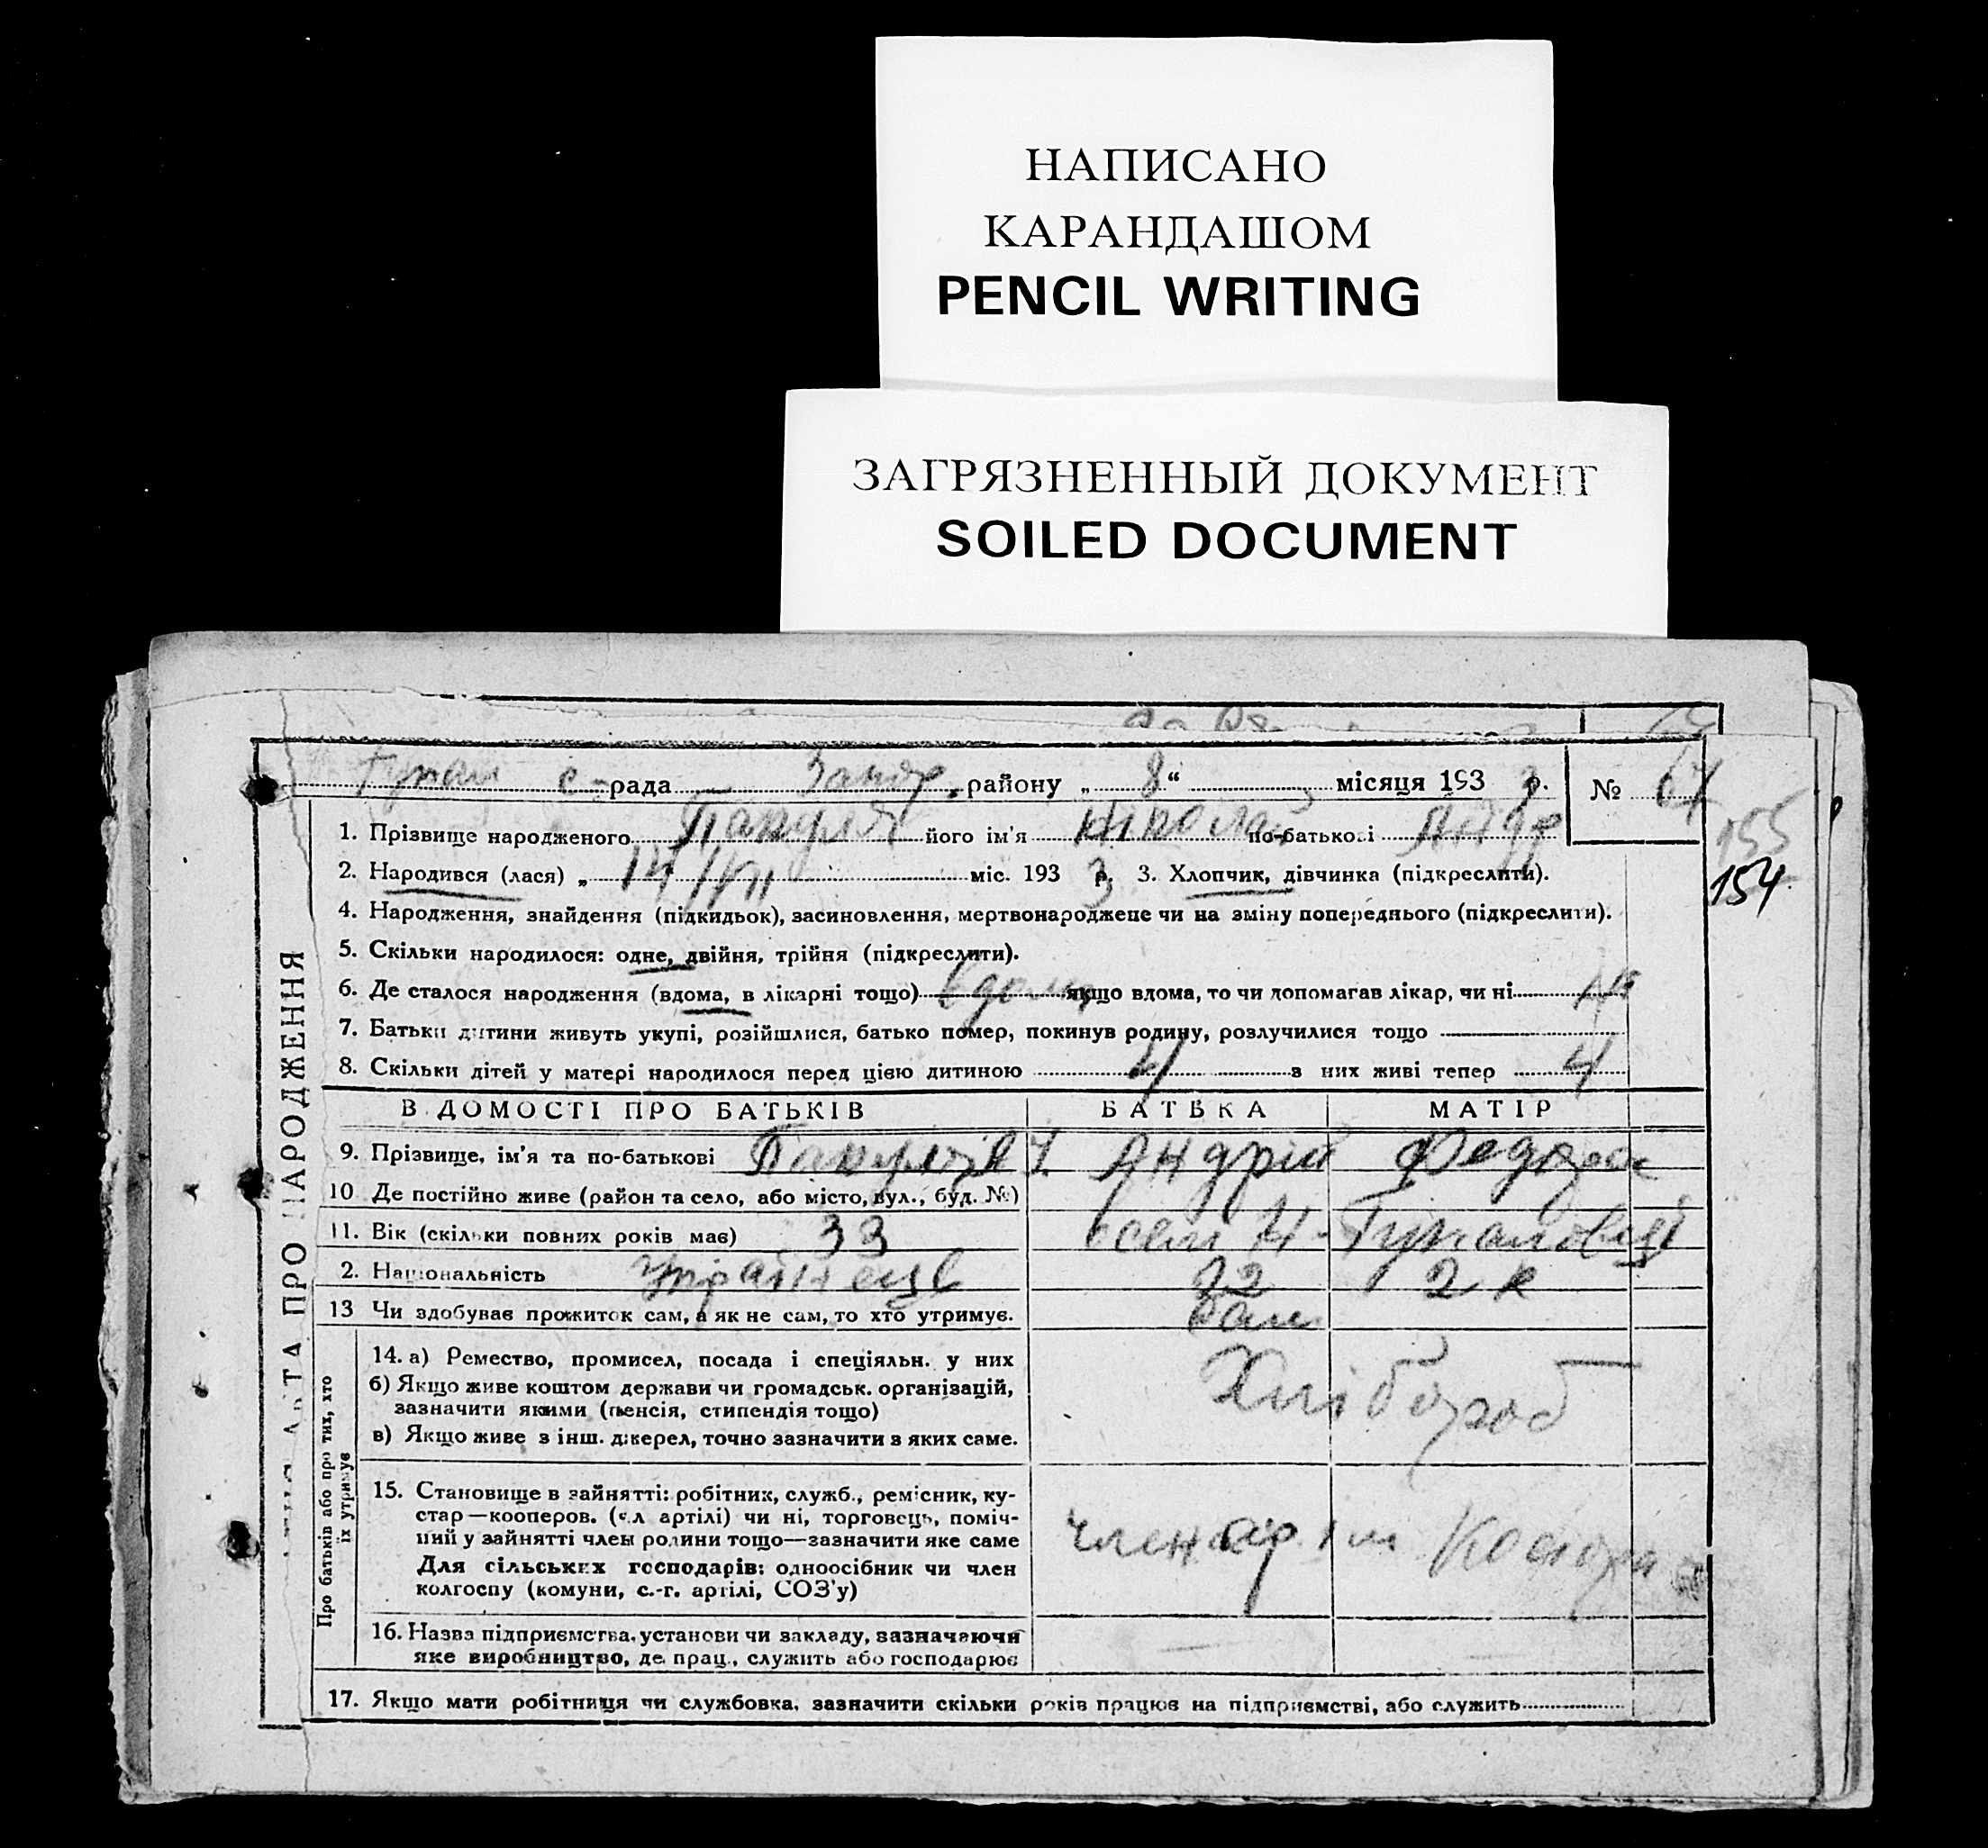 НАПИСАНО
КАРАНДАШОМ
PENCIL WRITING
ЗАГРЯЗНЕННЫЙ ДОКУМЕНТ
SOILED DOCUMENT
с-рада району „ 8 “ місяця 193 3 р. № 64
155
154
1. Прізвище народженого його ім'я Николай по-батькові
2. Народився (лася) „ 14 міс. 193 3 р. 3. Хлопчик, дівчинка (підкреслити).
4. Народження, знайдення (підкидьок), засиновлення, мертвонароджене чи на зміну попереднього (підкреслити).
5. Скільки народилося: одне, двійня, трійня (підкреслити).
6. Де сталося народження (вдома, в лікарні тощо) вдома якщо вдома, то чи допомагав лікар, чи ні
7. Батьки дитини живуть укупі, розійшлися, батько помер, покинув родину, розлучилися тощо
8. Скільки дітей у матері народилося перед цією дитиною 4 з них живі тепер 4
ВІДОМОСТІ ПРО БАТЬКІВ БАТЬКА МАТІР
9. Прізвище, ім'я та по-батькові Андрій
10 Де постійно живе (район та село, або місто, вул., буд. №)
11. Вік (скільки повних років має) 33
2. Національність
13 Чи здобуває прожиток сам, а як не сам, то хто утримує. сам
14. а) Ремество, промисел, посада і спеціяльн. у них Хлібороб
б) Якщо живе коштом держави чи громадськ. організацій,
зазначити якими (пенсія, стипендія тощо)
в) Якщо живе з інш. джерел, точно зазначити з яких саме.
15. Становище в зайнятті: робітник, служб., ремісник, ку-
стар—кооперов. (чл артілі) чи ні, торговець, поміч-
ний у зайнятті член родини тощо—зазначити яке саме член
Для сільських господарів: одноосібник чи член
колгоспу (комуни, с.-г. артілі, СОЗ'у)
16. Назва підприємства, установи чи закладу, зазначаючи
яке виробництво, де прац., служить або господарює
17. Якщо мати робітниця чи службовка, зазначити скільки років працює на підприємстві, або служить
ПРО НАРОДЖЕННЯ
Про батьків або про тих, хто
їх утримує